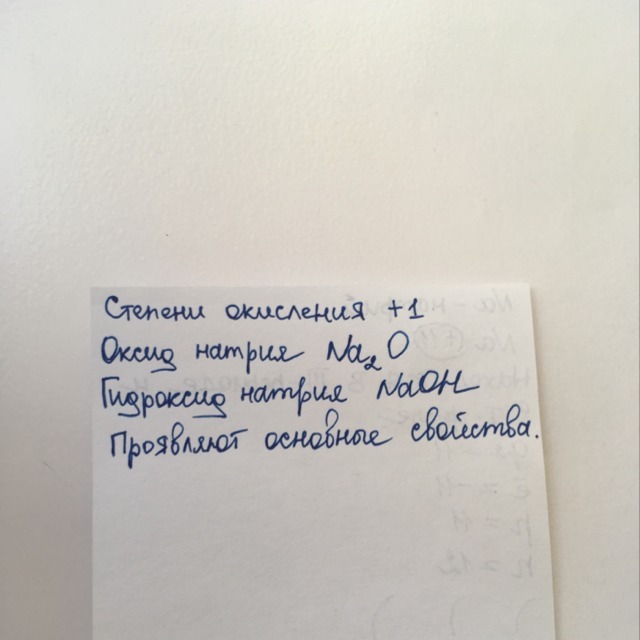 Степени окисления +1
Оксид натрия Na₂O
Гидроксид натрия NaOH
Проявляют основные свойства.